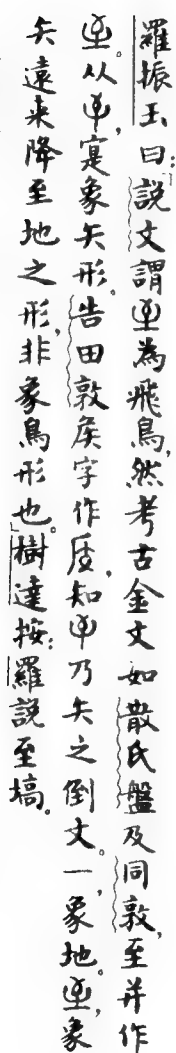 羅振玉曰：「說文謂𦤳為飛鳥，然考古金文如散氏盤及同敦，至并作
𦤳。从𠂕，寔象矢形。告田敦矦字作𥎦，知𠂕乃矢之倒文。一，象地。𦤳，象
矢遠來降至地之形，非象鳥形也。」樹達按：羅說至塙。